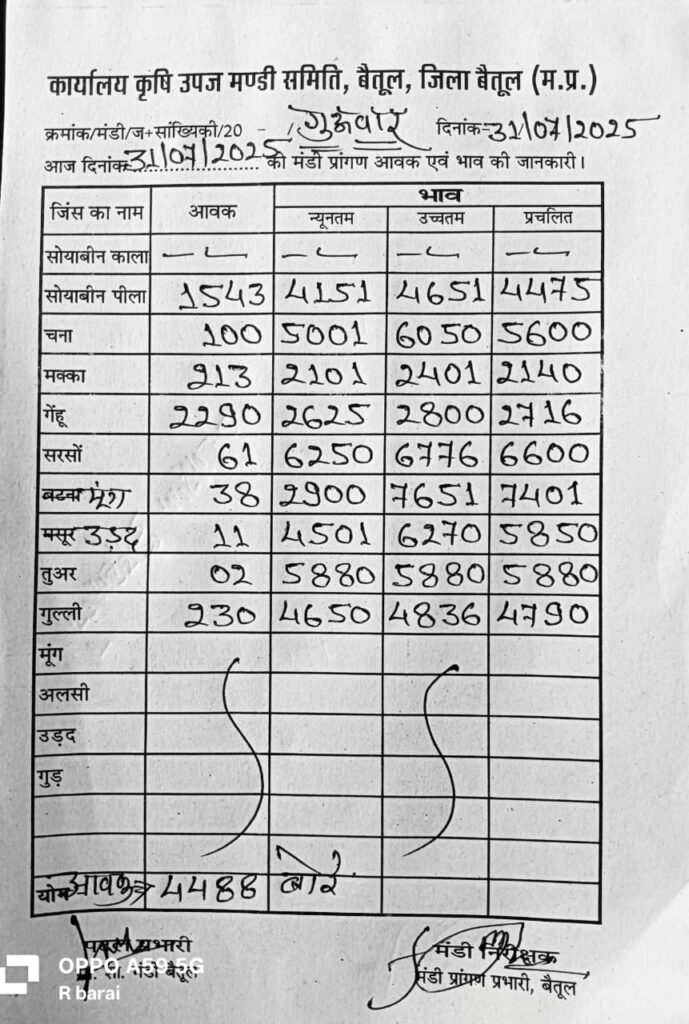 कार्यालय कृषि उपज मण्डी समिति, बैतूल, जिला बैतूल (म.प्र.)
क्रमांक/मंडी/ज+सांख्यिकी/20 - / गुरूवार दिनांक=31/07/2025
आज दिनांक 31/07/2025 की मंडी प्रांगण आवक एवं भाव की जानकारी।
जिंस का नाम आवक भाव
न्यूनतम उच्चतम प्रचलित
सोयाबीन काला — — — — — — — —
सोयाबीन पीला 1543 4151 4651 4475
चना 100 5001 6050 5600
मक्का 213 2101 2401 2140
गेंहू 2290 2625 2800 2716
सरसों 61 6250 6776 6600
बटला मूंग 38 2900 7651 7401
मसूर उड़द 11 4501 6270 5850
तुअर 02 5880 5880 5880
गुल्ली 230 4650 4836 4790
मूंग
अलसी
उड़द
गुड़
योग आवक 4488 बोरे
प्रभारी मंडी निरीक्षक
मंडी बैतूल मंडी प्रांगण प्रभारी, बैतूल
OPPO A59 5G
R barai